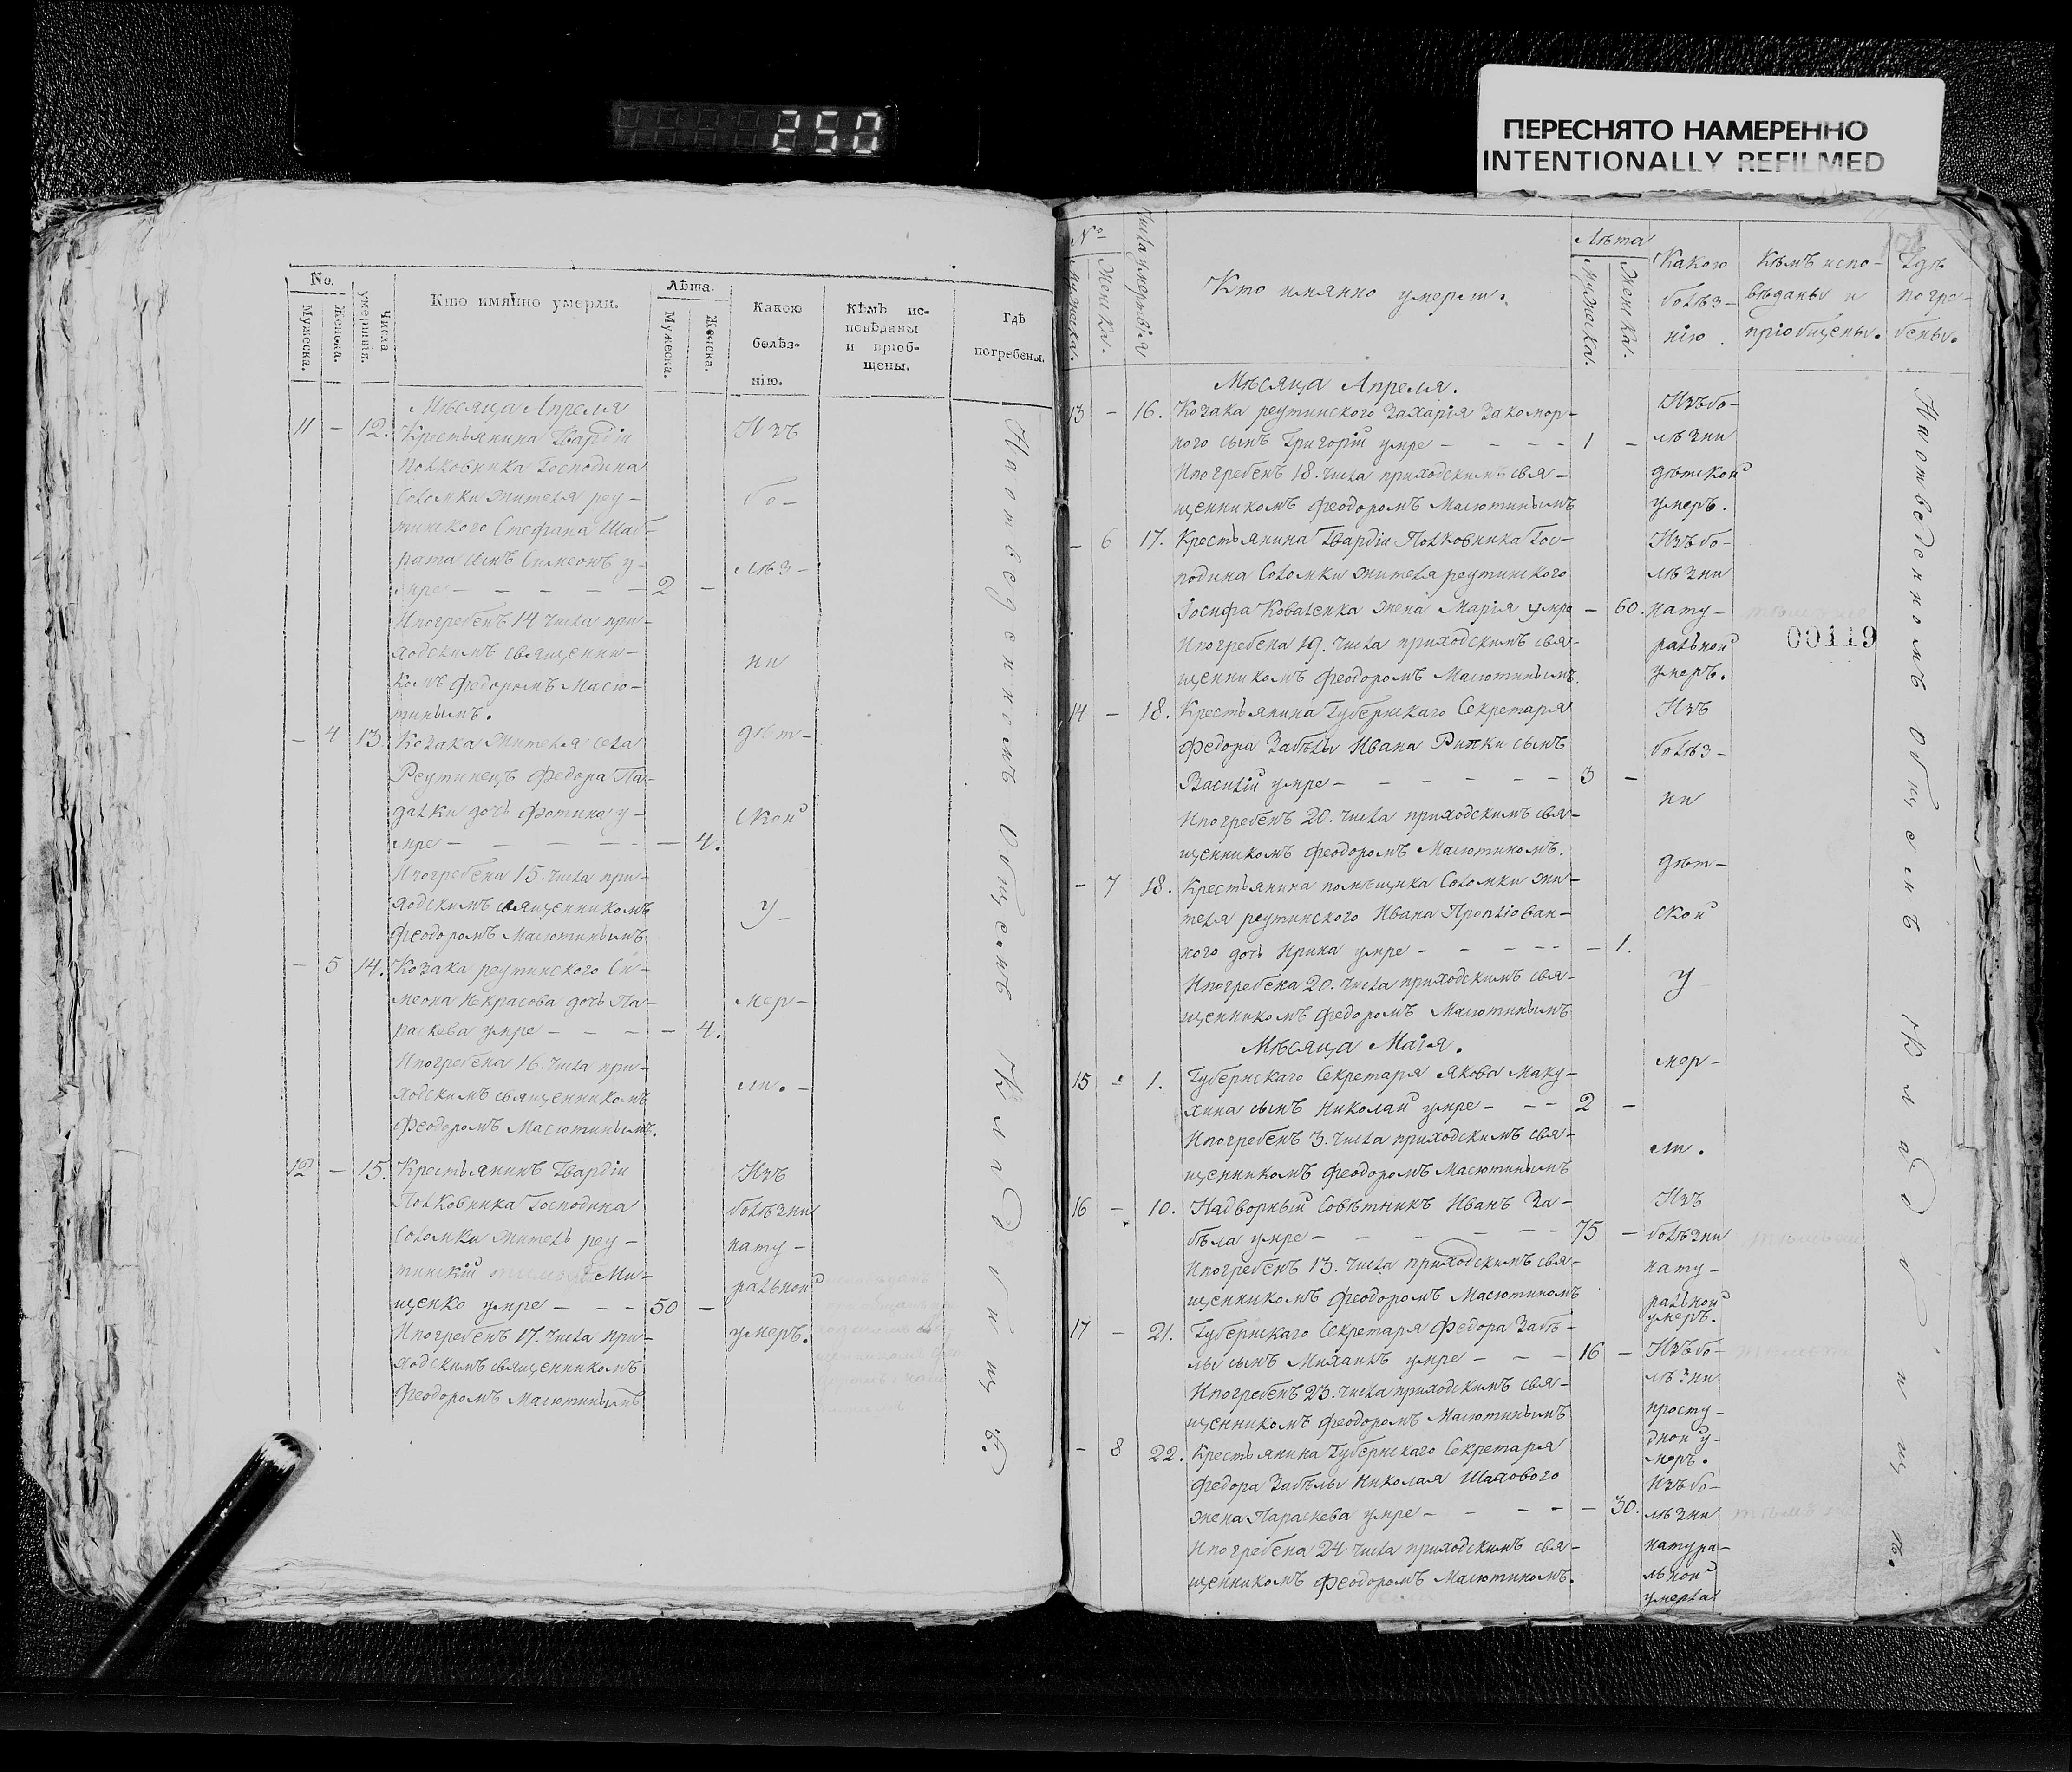 250
ПЕРЕСНЯТО НАМЕРЕННО
INTENTIONALLY REFILMED
No.
Мужеска.
Женска.
Числа умершия.
Кто имянно умерли.
Лѣта.
Мужеска.
Женска.
Какою болѣз-
нію.
кѣмъ ис-
повѣданы
и пріоб-
щены.
Гдѣ
погребены.
Мѣсяца Апреля
11 - 12. Крестьянина Гвардіи
Полковника Господина
Соломки жителя реу-
тинского Стефана Шаб-
рата сынъ Симеонъ у-
мре - - - - - 2 -
Ипогребенъ 14 числа при-
ходскимъ священни-
комъ Федоромъ Масю-
тинымъ.
- 4 13. Козака жителя села
Реутинецъ Федора Па-
далки дочь Фотина у-
мре - - - - - - 4.
Ипогребена 15. числа при-
ходскимъ священникомъ
Феодоромъ Масютинымъ
- 5 14. Козака реутинского Си-
меона Некрасова дочь Па-
раскева умре - - - - 4.
Ипогребена 16. числа при-
ходскимъ священникомъ
Феодоромъ Масютинымъ.
Изъ
бо-
лѣз-
ни
дѣт-
ской
у-
мер-
ли.
12 - 15. Крестьянинъ Гвардіи
Полковника Господина
Соломки житель реу-
тинскій Ми-
щенко умре - - - 50 -
Ипогребенъ 17. числа при-
ходскимъ священникомъ
Феодоромъ Масютинымъ
Изъ
болѣзни
нату-
ральной
умеръ.
Наотведенномъ Общемъ Кладбищѣ.
№
Мужеска.
Женска.
Числа умертвія
Кто имянно умерли.
Лѣта
Мужеска.
Женска.
Какою
болѣз-
нію.
Кѣмъ испо-
вѣданы и
пріобщены.
Гдѣ
погре-
бены.
Мѣсяца Апреля.
13 - 16. Козака реутинского Захарія Закомор-
ного сынъ Григорій умре - - - - 1 -
Ипогребенъ 18. числа приходскимъ свя-
щенникомъ Феодоромъ Масютинымъ
Изъ бо-
лѣзни
дѣтской
умеръ.
- 6 17. Крестьянина Гвардіи Полковника Гос-
подина Соломки жителя реутинского
Іосифа Коваленка жена Марія умре - 60.
Ипогребена 19. числа приходскимъ свя-
щенникомъ Феодоромъ Масютинымъ.
Изъ бо-
лѣзни
нату-
ральной
умеръ.
00119
14 - 18. Крестьянина Губернскаго Секретаря
Федора Забѣлы Ивана Рипки сынъ
Василій умре - - - - - - 3 -
Ипогребенъ 20. числа приходскимъ свя-
щенникомъ Феодоромъ Масютиномъ.
- 7 18. Крестьянина помѣщика Соломки жи-
теля реутинского Ивана
ного дочь Ирина умре - - - - - - 1.
Ипогребена 20. числа приходскимъ свя-
щенникомъ Федоромъ Масютинымъ
Мѣсяца Маія.
15 - 1. Губернскаго Секретаря Якова Маку-
хина сынъ Николай умре - - - 2 -
Ипогребенъ 3. числа приходскимъ свя-
щенникомъ Феодоромъ Масютинымъ
Изъ
болѣз-
ни
дѣт-
ской
у
мер-
ли.
16 - 10. Надворный Совѣтникъ Иванъ За-
бѣла умре - - - - - - 75 -
Ипогребенъ 13. числа приходскимъ свя-
щенникомъ Феодоромъ Масютиномъ
Изъ
болѣзни
нату-
ральной
умеръ.
17 - 21. Губернскаго Секретаря Федора Забѣ-
лы сынъ Михаилъ умре - - - 16 -
Ипогребенъ 23. числа приходскимъ свя-
щенникомъ Феодоромъ Масютинымъ
Изъ бо-
лѣзни
просту-
дной у-
меръ.
- 8 22. Крестьянина Губернскаго Секретаря
Федора Забѣлы Николая Шахового
жена Параскева умре - - - - - 30.
Ипогребена 24 числа приходскимъ свя-
щенникомъ Феодоромъ Масютиномъ.
Изъ бо-
лѣзни
натура-
льной
умерла
Наотведенномъ Общемъ Кладбищѣ.